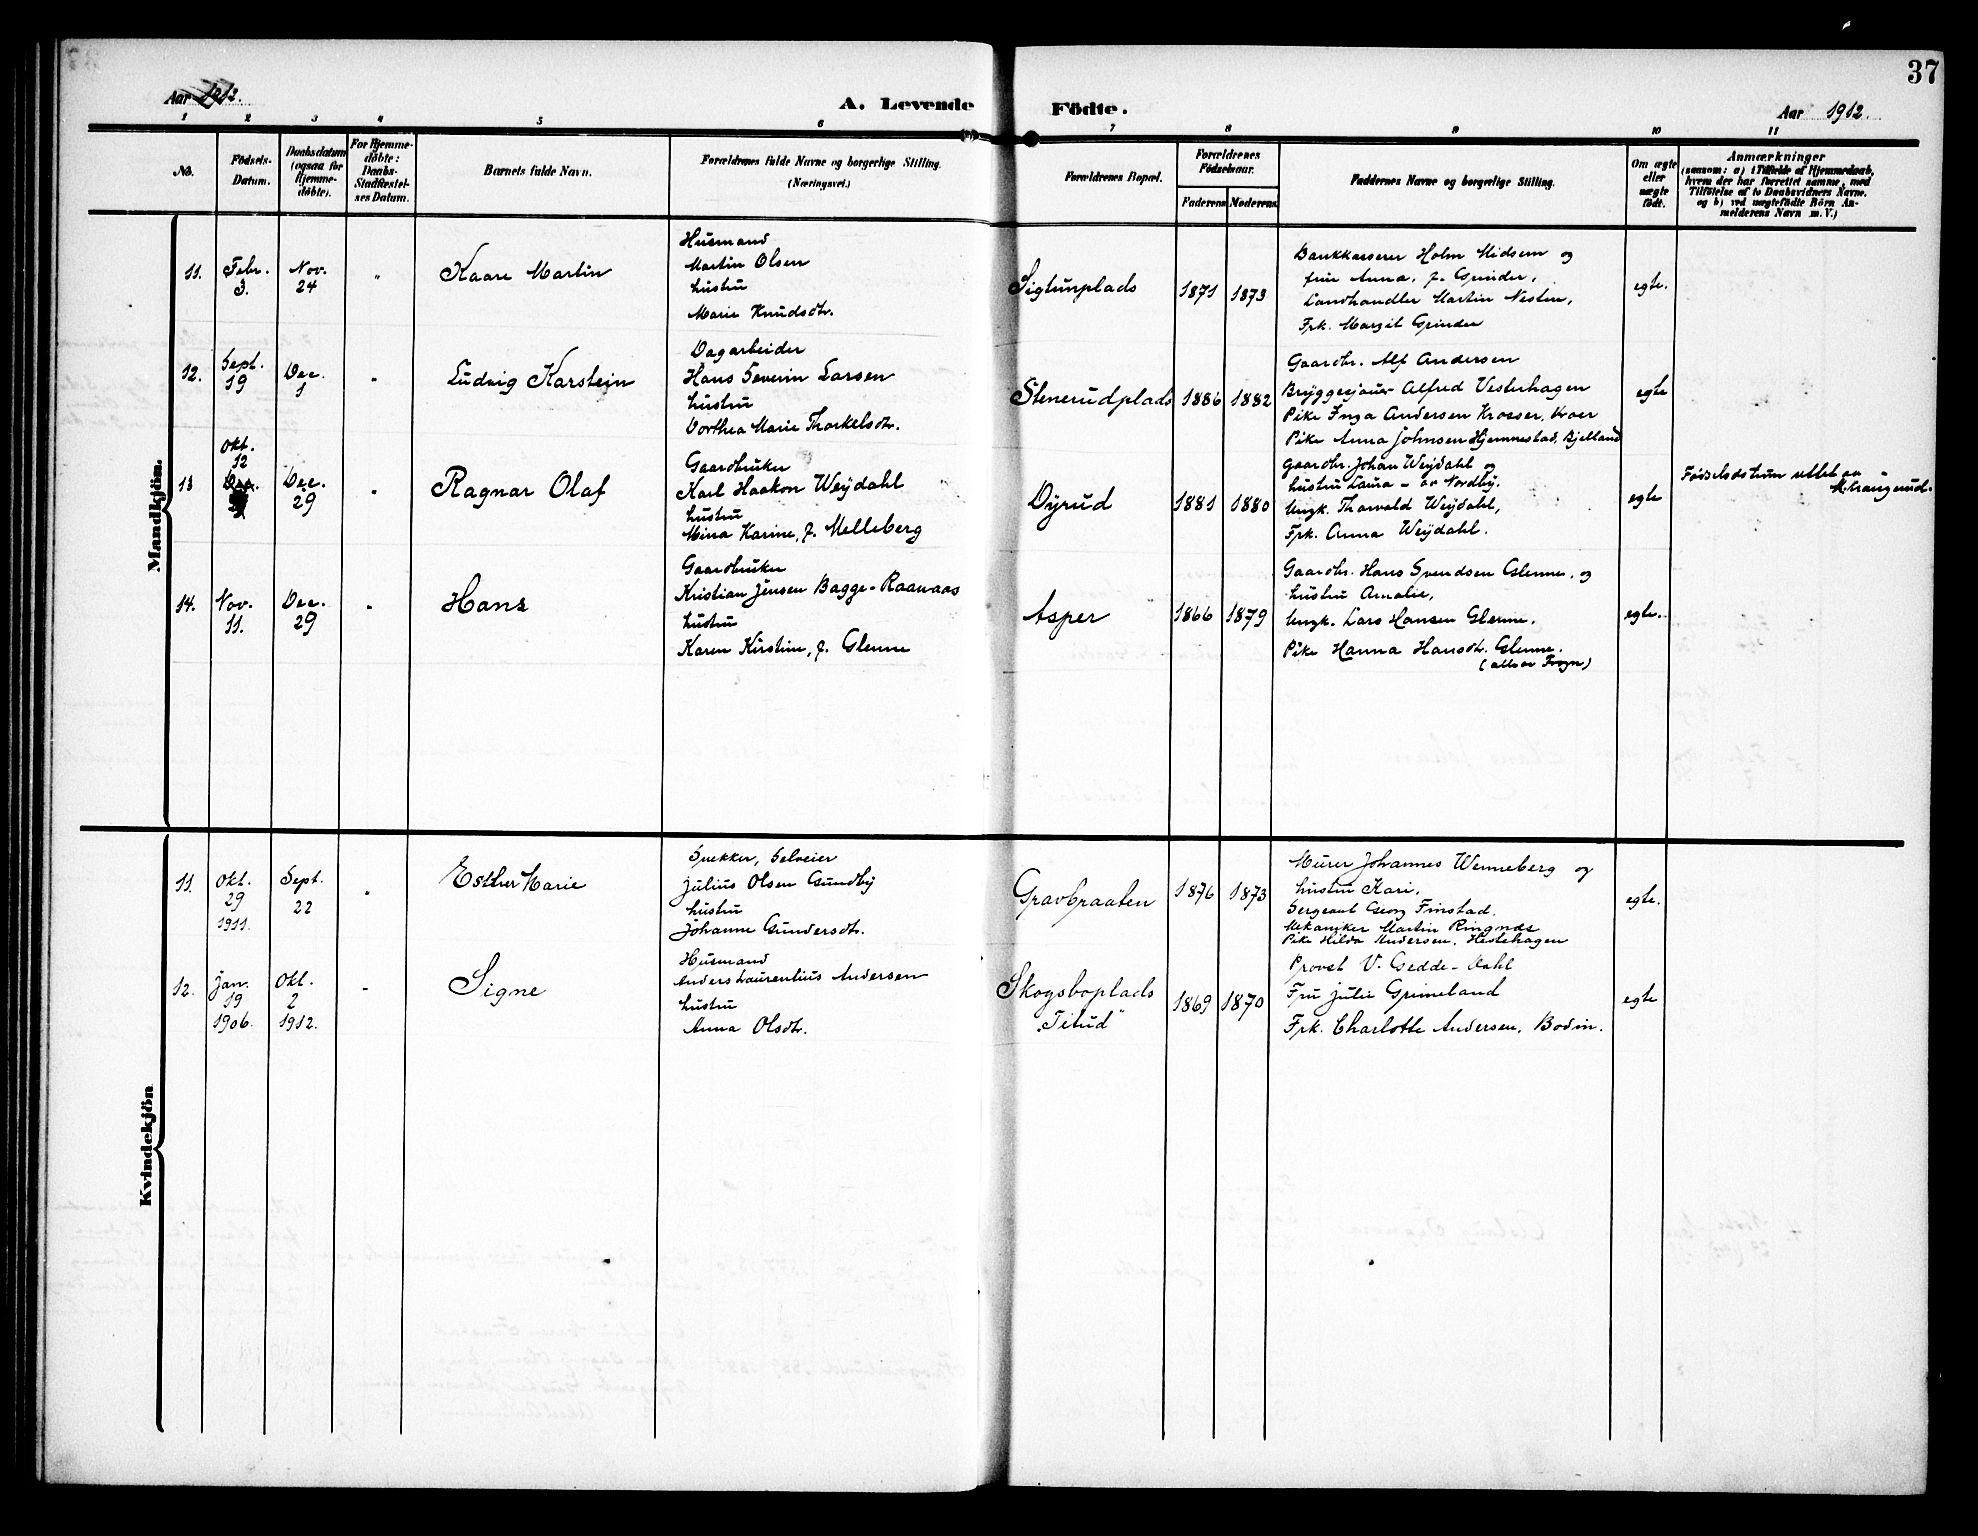 37
Aar 1912.
A. Levende
Födte.
Aar 1912.
1 2 3 4 5 6 7 8 9 10 11
No.
Födsels-
Datum.
Daabsdatum
(ogsaa for
Hjemme-
döbte).
For Hjemme-
döbte:
Daabs-
Stadfæstel-
ses Datum.
Barnets fulde Navn.
Forældrenes fulde Navne og borgerlige Stilling.
(Næringsvei.)
Forældrenes Bopæl.
Forældrenes
Födselsaar.
Faderens
Moderens
Faddernes Navne og borgerlige Stilling.
Om ægte
eller
uægte
födt.
Anmærkninger
(saasom: a) i Tilfælde af Hjemmedaab,
hvem der har forrettet samme, med
Tilföielse af to Daabsvidners Navne.
og b) ved uægtefödte Börn An-
melderens Navn m. V.)
Mandkjön.
11. Febr. 3. Nov. 24 " Kaare Martin
Husmand
Martin Olsen
hustru
Marie Knudsdtr.
Sigtunplads 1871 1873
Bankkasserer Holm Midsem og
frue Anna, f. Grinder,
Landhandler Martin Nesten,
Frk. Margit Grinder
egte.
12. Sept. 19 Dec. 1 " Ludvig Karstein
Dagarbeider
Hans Severin Larsen
hustru
Dorthea Marie Thorkelsdtr.
Stenerudplads 1886 1882
Gaardbr. Alf Andersen
Bryggesjauer Alfred Vesterhagen
Pike Inga Andersen Krosser, Kroer
Pike Anna Johnsen Hjemmestad, Bjelland
egte
13 Okt. 12 Dec. 29 " Ragnar Olaf
Gaardbruker
Karl Haakon Weydahl
hustru
Mina Karine, f. Melleberg
Dyrud 1881 1880
Gaardbr. Johan Weydahl og
hustru Laura - av Nordby.
Ungk. Thorvald Weydahl,
Frk. Anna Weydahl.
egte
Fødselsdatum rettet av
14. Nov. 11. Dec. 29 " Hans
Gaardbruker
Kristian Jensen Bagge-Raanaas
hustru
Karen Kirstine, f. Glenne
Asper 1866 1879
Gaardbr. Hans Svendsen Glenne, og
hustru Amalie,
Ungk. Lars Hansen Glenne.
Pike Hanna Hansdtr. Glenne.
(alle av Frogn)
egte.
Kvindekjön
11. Okt. 29 1911. Sept. 22 " Esther Marie
Snekker, Selveier
Julius Olsen Gundby
hustru
Johanne Gundersdtr.
Gravbraaten 1876 1873
Murer Johannes Wenneberg og
hustru Kari.
Sergeant Georg Finstad.
Mekaniker Martin Ringnes
Pike Hilda Andersen, Hestehagen
egte.
12. Jan. 19 1906. Okt. 2 1912. - Signe
Husmand
Anders Laurentius Andersen
hustru
Anna Olsdtr.
Skogsboplads
"Titud" 1869 1870
Provst V. Gedde-Dahl
Fru Julie Grimeland
Frk. Charlotte Andersen, Bodin.
egte